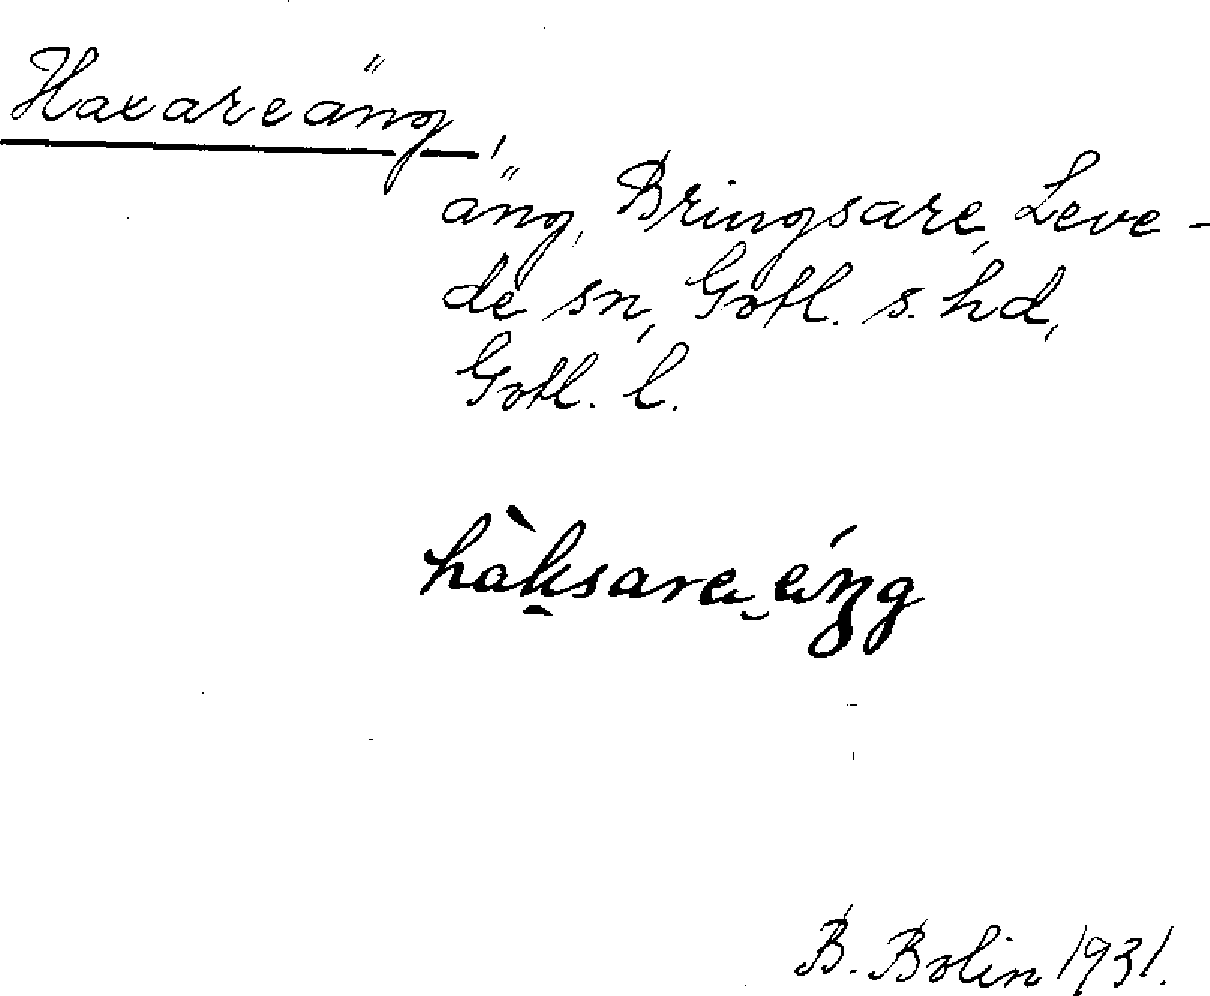 Haxareäng,
äng, Bringsare, Leve-
de sn, Gotl. s. hd,
Gotl. l.
hàksare éŋg
B. Bolin 1931.